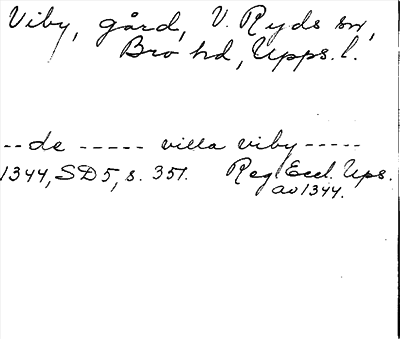 Viby, gård, V. Ryds sn,
Bro hd, Upps. l.
-- de ----- villa viby -----
1344, SD 5, s. 351. Reg Eccl. Ups.
av 1344.